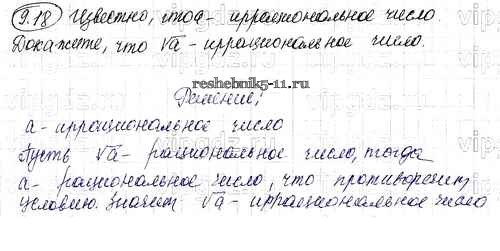 9.18 Известно, что a - иррациональное число.
Докажите, что √a - иррациональное число.
reshebnik5-11.ru
Решение;
a - иррациональное число
Пусть √a - рациональное число, тогда
a - рациональное число, что противоречит
условию. значит √a - иррациональное число